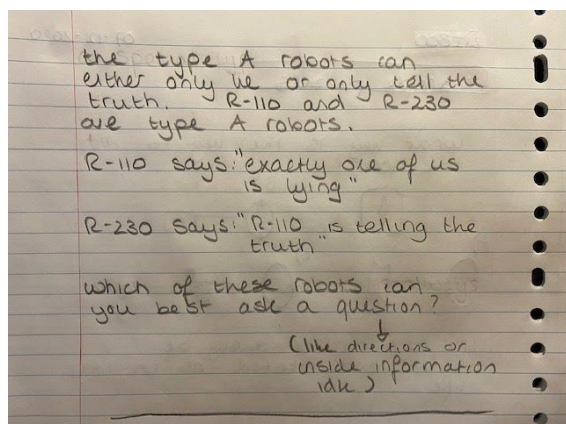 the type A robots can
either only lie or only tell the
truth. R-110 and R-230
are type A robots.
R-110 says: "exactly one of us
is lying"
R-230 says: "R-110 is telling the
truth"
which of these robots can
you best ask a question?
(like directions or
inside information
idk)